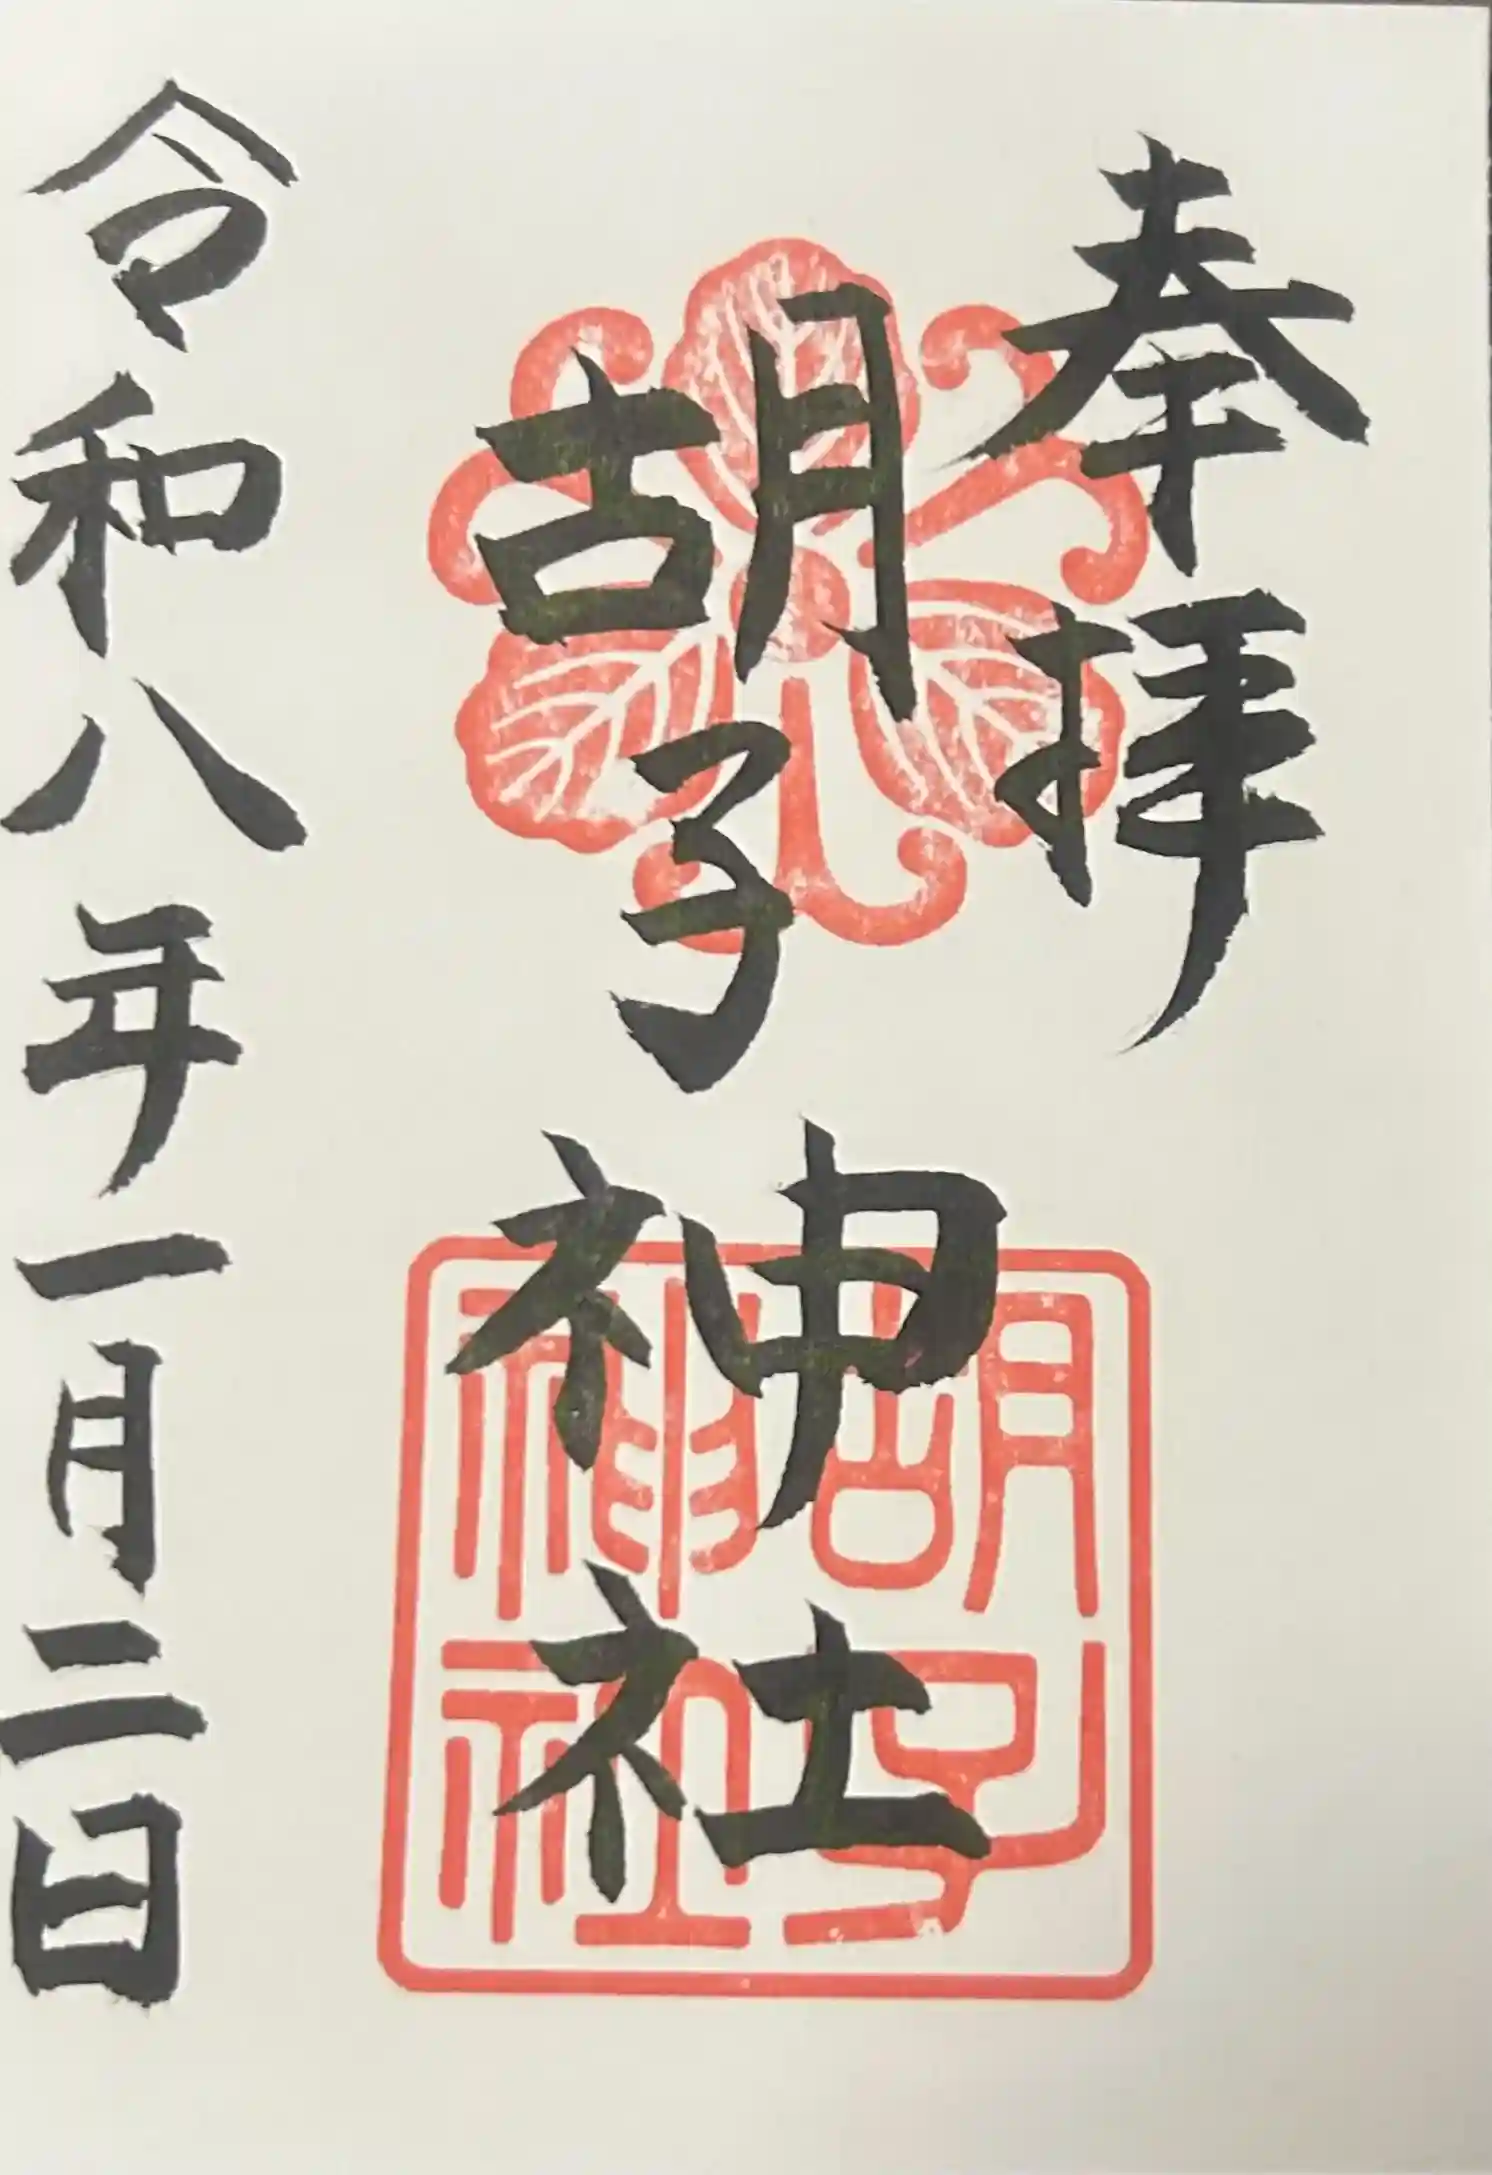 奉拝
胡子神社
胡子神社
令和八年一月二日